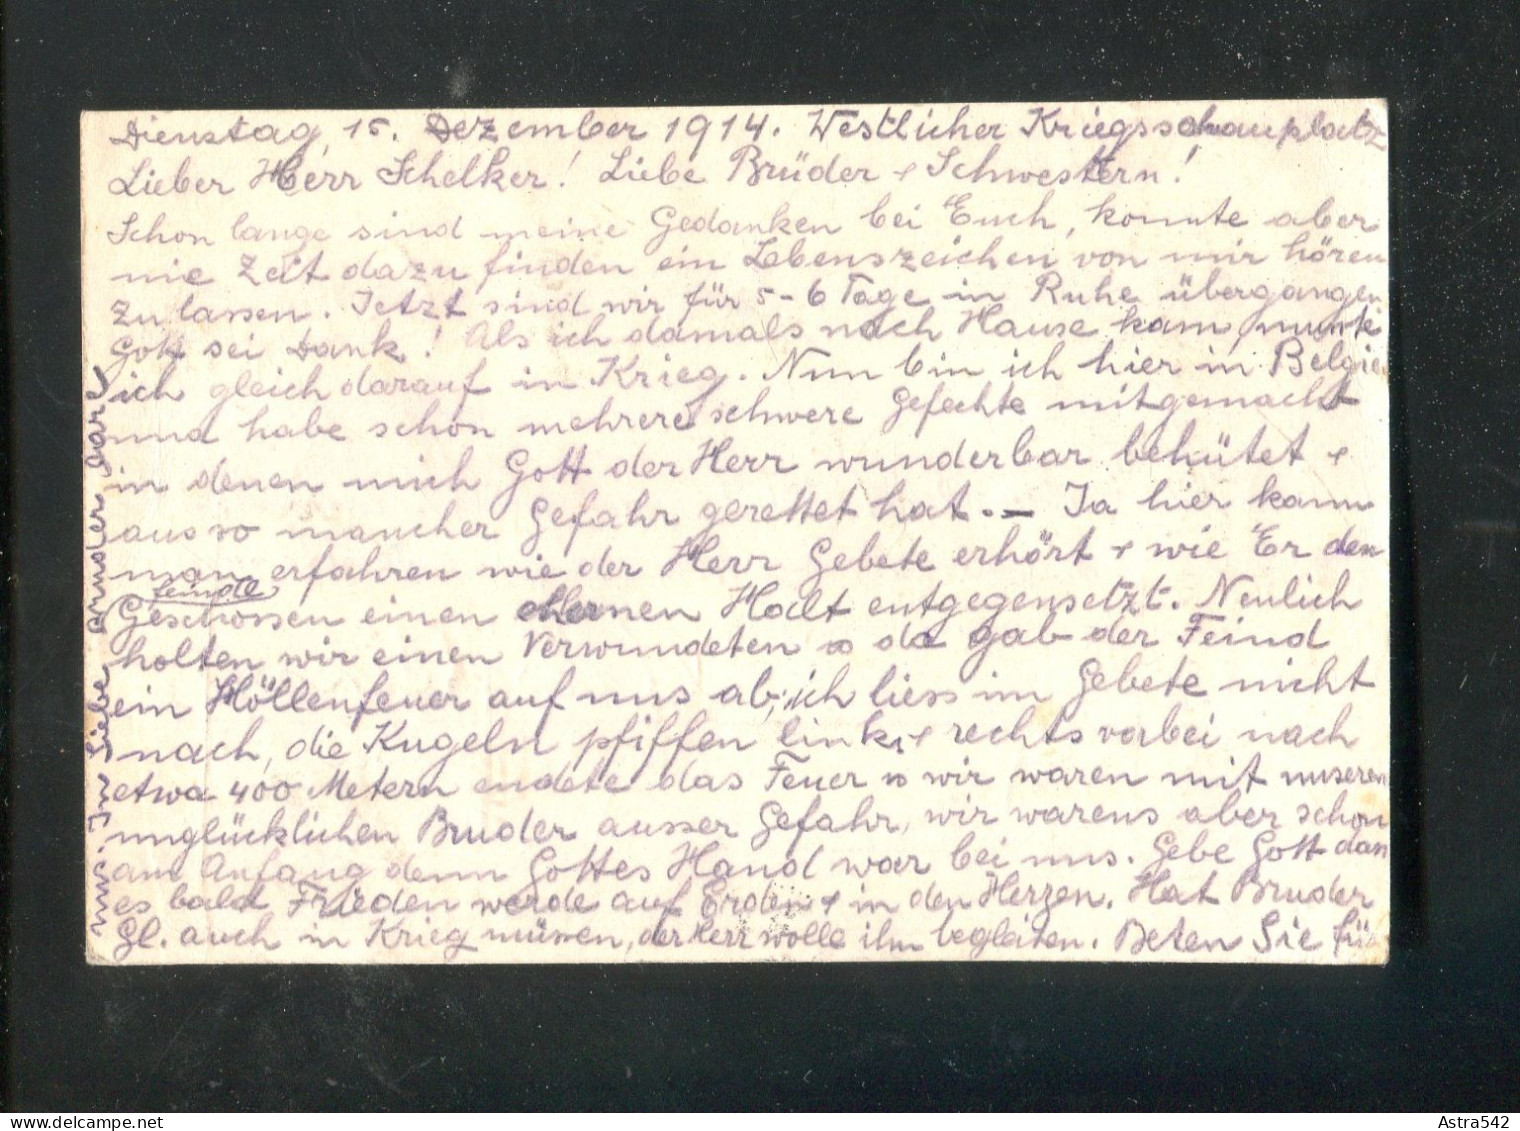 Dienstag, 15. Dezember 1914. Westlicher Kriegsschauplatz
Lieber Herr Schelker! Liebe Brüder & Schwestern!
Schon lange sind meine Gedanken bei Euch, konnte aber
nie Zeit dazu finden ein Lebenszeichen von mir hören
zu lassen. Jetzt sind wir für 5-6 Tage in Ruhe übergangen
Gott sei Dank! Als ich damals nach Hause kam musste
ich gleich darauf in Krieg. Nun bin ich hier in Belgien
und habe schon mehrere schwere Gefechte mitgemacht
in denen mich Gott der Herr wunderbar behütet &
aus so mancher Gefahr gerettet hat. — Ja hier kann
man erfahren wie der Herr Gebete erhört & wie Er den
feindl.
Geschossen einen ehernen Halt entgegensetzt. Neulich
holten wir einen Verwundeten & da gab der Feind
ein Höllenfeuer auf uns ab, ich liess im Gebete nicht
nach, die Kugeln pfiffen links & rechts vorbei nach
etwa 400 Metern endete das Feuer & wir waren mit unseren
unglücklichen Bruder ausser Gefahr, wir warens aber schon
am Anfang denn Gottes Hand war bei uns. Gebe Gott dass
es bald Frieden werde auf Erden & in den Herzen. Hat Bruder
Gl. auch in Krieg müssen, der Herr wolle ihn begleiten. Beten Sie für
uns. In Liebe Bruder
Astra542